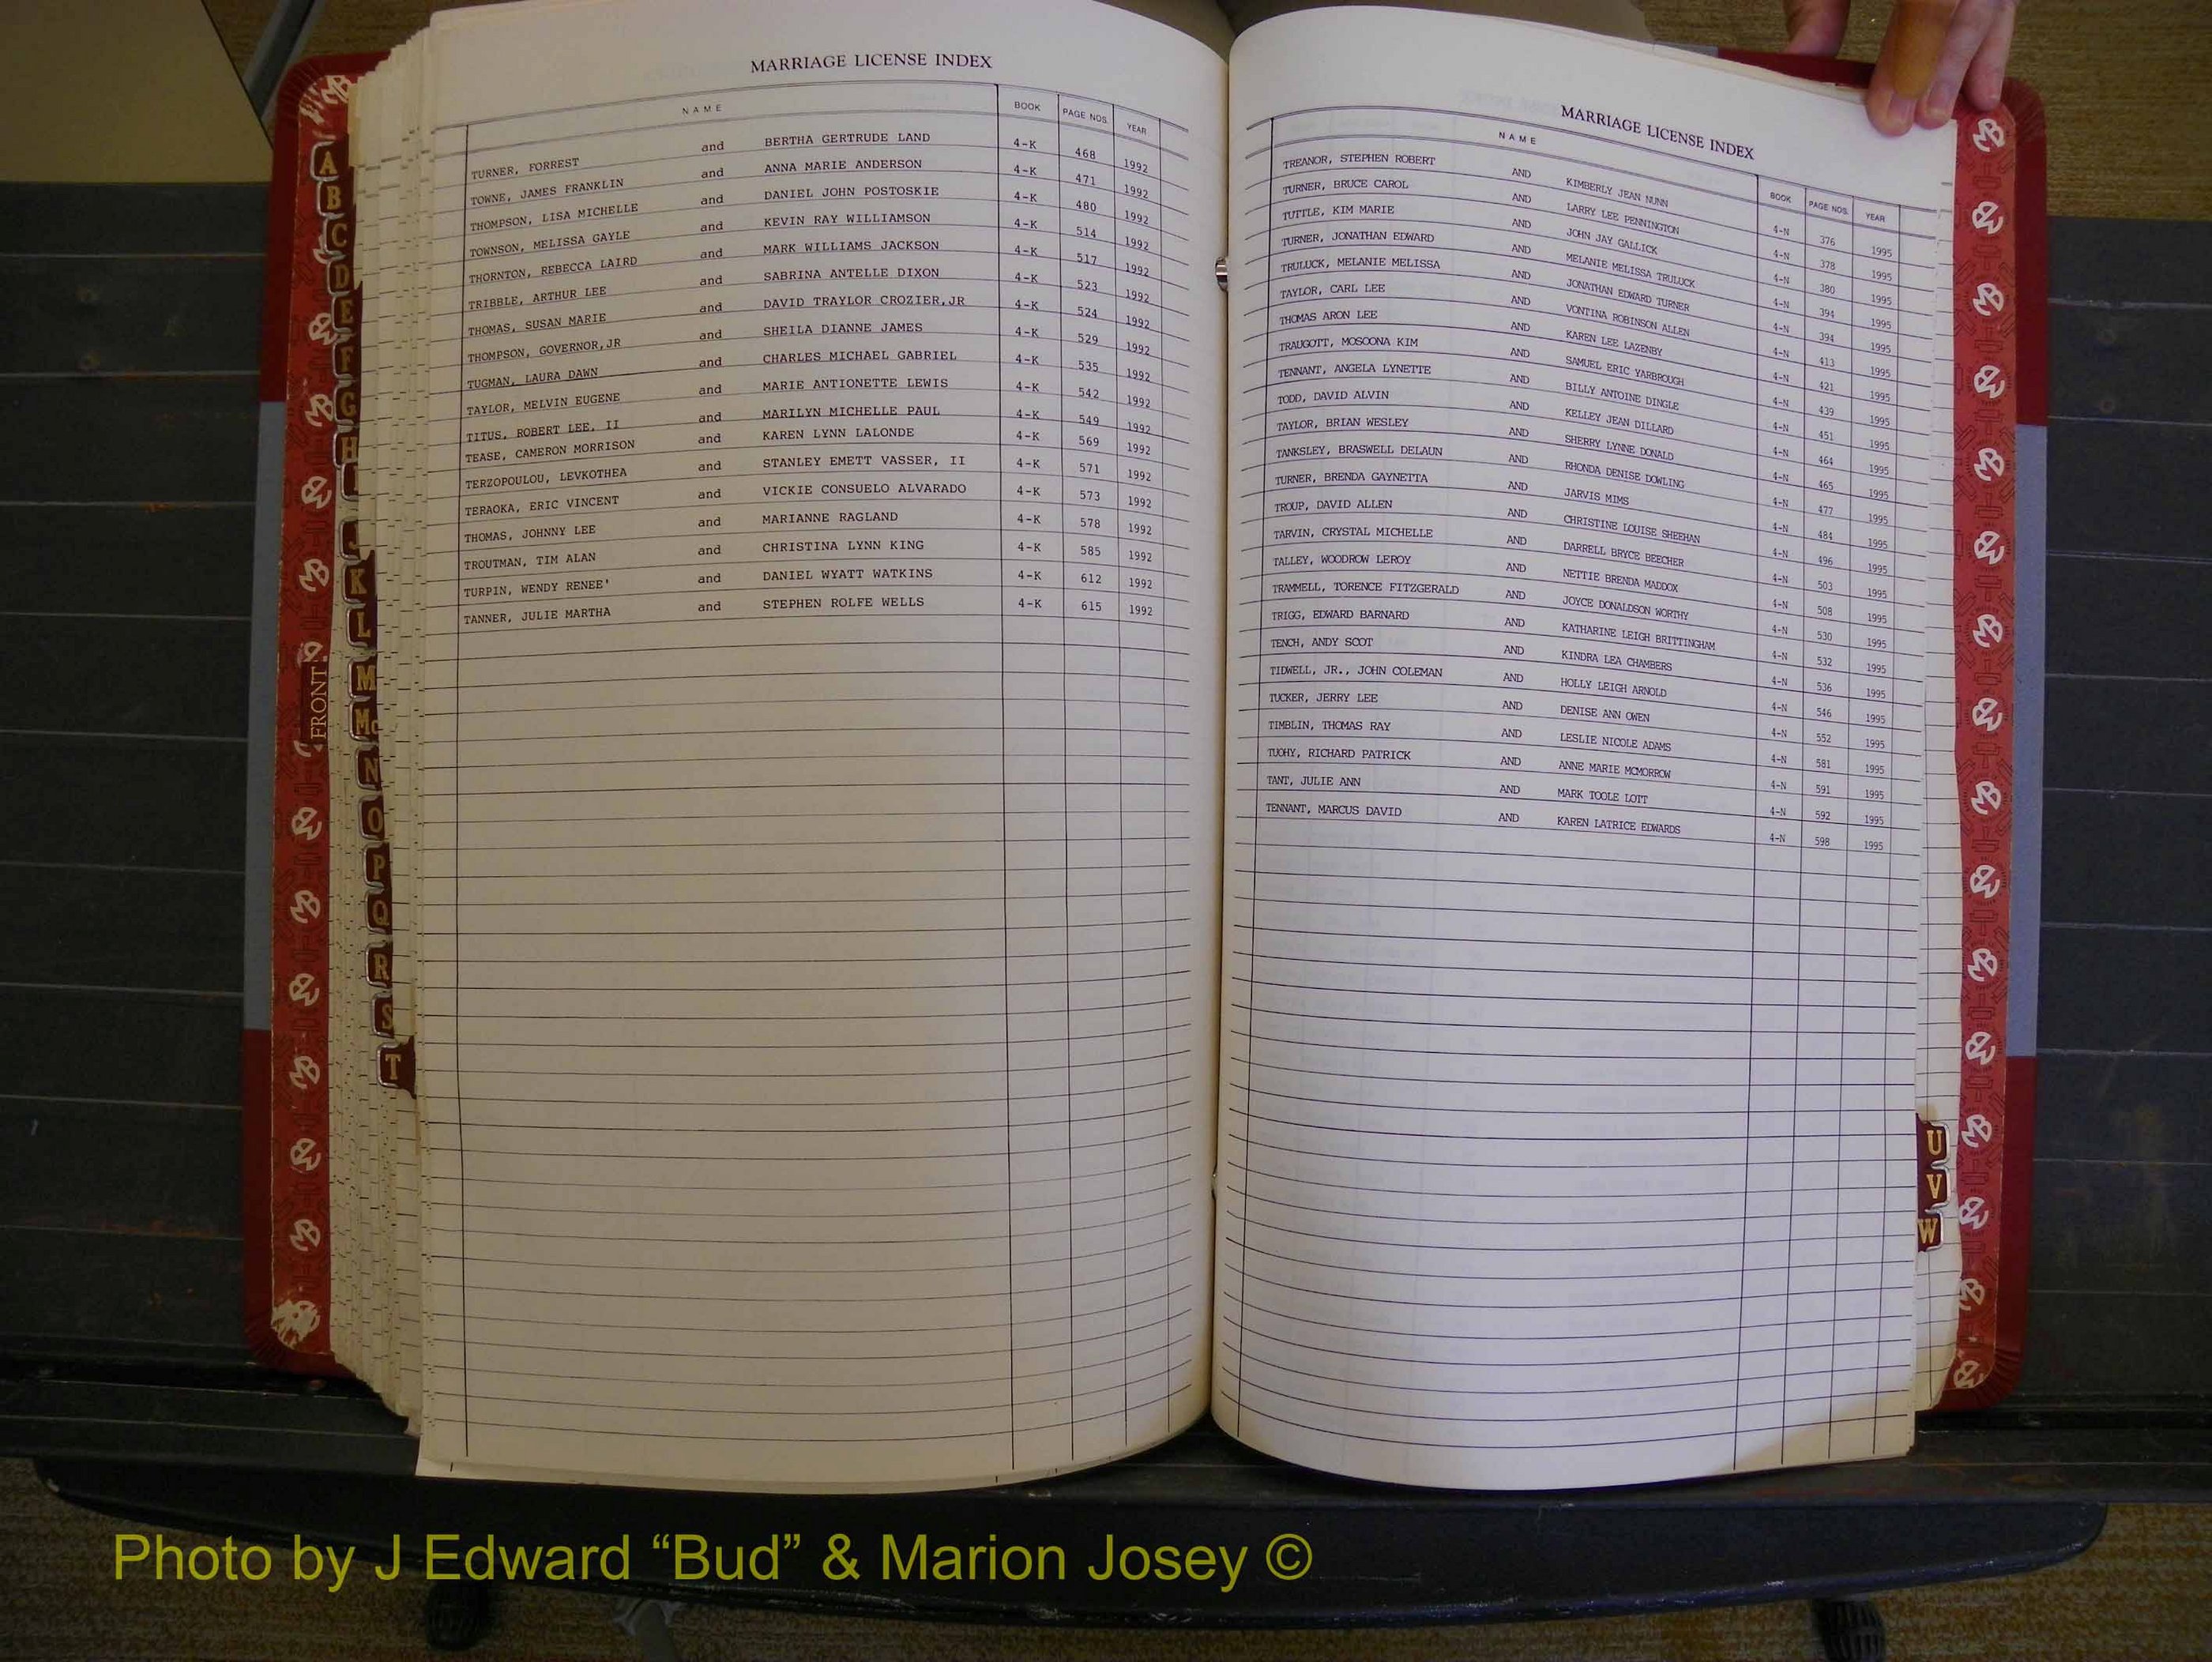 MARRIAGE LICENSE INDEX
NAME BOOK PAGE NOS. YEAR
TURNER, FORREST and BERTHA GERTRUDE LAND 4-K 468 1992
TOWNE, JAMES FRANKLIN and ANNA MARIE ANDERSON 4-K 471 1992
THOMPSON, LISA MICHELLE and DANIEL JOHN POSTOSKIE 4-K 480 1992
TOWNSON, MELISSA GAYLE and KEVIN RAY WILLIAMSON 4-K 514 1992
THORNTON, REBECCA LAIRD and MARK WILLIAMS JACKSON 4-K 517 1992
TRIBBLE, ARTHUR LEE and SABRINA ANTELLE DIXON 4-K 523 1992
THOMAS, SUSAN MARIE and DAVID TRAYLOR CROZIER,JR 4-K 524 1992
THOMPSON, GOVERNOR,JR and SHEILA DIANNE JAMES 4-K 529 1992
TUGMAN, LAURA DAWN and CHARLES MICHAEL GABRIEL 4-K 535 1992
TAYLOR, MELVIN EUGENE and MARIE ANTIONETTE LEWIS 4-K 542 1992
TITUS, ROBERT LEE, II and MARILYN MICHELLE PAUL 4-K 549 1992
TEASE, CAMERON MORRISON and KAREN LYNN LALONDE 4-K 569 1992
TERZOPOULOU, LEVKOTHEA and STANLEY EMETT VASSER, II 4-K 571 1992
TERAOKA, ERIC VINCENT and VICKIE CONSUELO ALVARADO 4-K 573 1992
THOMAS, JOHNNY LEE and MARIANNE RAGLAND 4-K 578 1992
TROUTMAN, TIM ALAN and CHRISTINA LYNN KING 4-K 585 1992
TURPIN, WENDY RENEE' and DANIEL WYATT WATKINS 4-K 612 1992
TANNER, JULIE MARTHA and STEPHEN ROLFE WELLS 4-K 615 1992
MARRIAGE LICENSE INDEX
NAME BOOK PAGE NOS. YEAR
TREANOR, STEPHEN ROBERT AND KIMBERLY JEAN NUNN 4-N 376 1995
TURNER, BRUCE CAROL AND LARRY LEE PENNINGTON 4-N 378 1995
TUTTLE, KIM MARIE AND JOHN JAY GALLICK 4-N 380 1995
TURNER, JONATHAN EDWARD AND MELANIE MELISSA TRULUCK 4-N 394 1995
TRULUCK, MELANIE MELISSA AND JONATHAN EDWARD TURNER 4-N 394 1995
TAYLOR, CARL LEE AND VONTINA ROBINSON ALLEN 4-N 413 1995
THOMAS ARON LEE AND KAREN LEE LAZENBY 4-N 421 1995
TRAUGOTT, MOSOONA KIM AND SAMUEL ERIC YARBROUGH 4-N 439 1995
TENNANT, ANGELA LYNETTE AND BILLY ANTOINE DINGLE 4-N 451 1995
TODD, DAVID ALVIN AND KELLEY JEAN DILLARD 4-N 464 1995
TAYLOR, BRIAN WESLEY AND SHERRY LYNNE DONALD 4-N 465 1995
TANKSLEY, BRASWELL DELAUN AND RHONDA DENISE DOWLING 4-N 477 1995
TURNER, BRENDA GAYNETTA AND JARVIS MIMS 4-N 484 1995
TROUP, DAVID ALLEN AND CHRISTINE LOUISE SHEEHAN 4-N 496 1995
TARVIN, CRYSTAL MICHELLE AND DARRELL BRYCE BEECHER 4-N 503 1995
TALLEY, WOODROW LEROY AND NETTIE BRENDA MADDOX 4-N 508 1995
TRAMMELL, TORENCE FITZGERALD AND JOYCE DONALDSON WORTHY 4-N 530 1995
TRIGG, EDWARD BARNARD AND KATHARINE LEIGH BRITTINGHAM 4-N 532 1995
TENCH, ANDY SCOT AND KINDRA LEA CHAMBERS 4-N 536 1995
TIDWELL, JR., JOHN COLEMAN AND HOLLY LEIGH ARNOLD 4-N 546 1995
TUCKER, JERRY LEE AND DENISE ANN OWEN 4-N 552 1995
TIMBLIN, THOMAS RAY AND LESLIE NICOLE ADAMS 4-N 581 1995
TUOHY, RICHARD PATRICK AND ANNE MARIE MCMORROW 4-N 591 1995
TANT, JULIE ANN AND MARK TOOLE LOTT 4-N 592 1995
TENNANT, MARCUS DAVID AND KAREN LATRICE EDWARDS 4-N 598 1995
A
B
C
D
E
F
G
H
I
J
K
L
M
Mc
N
O
P
Q
R
S
T
FRONT
U
V
W
Photo by J Edward “Bud” & Marion Josey ©